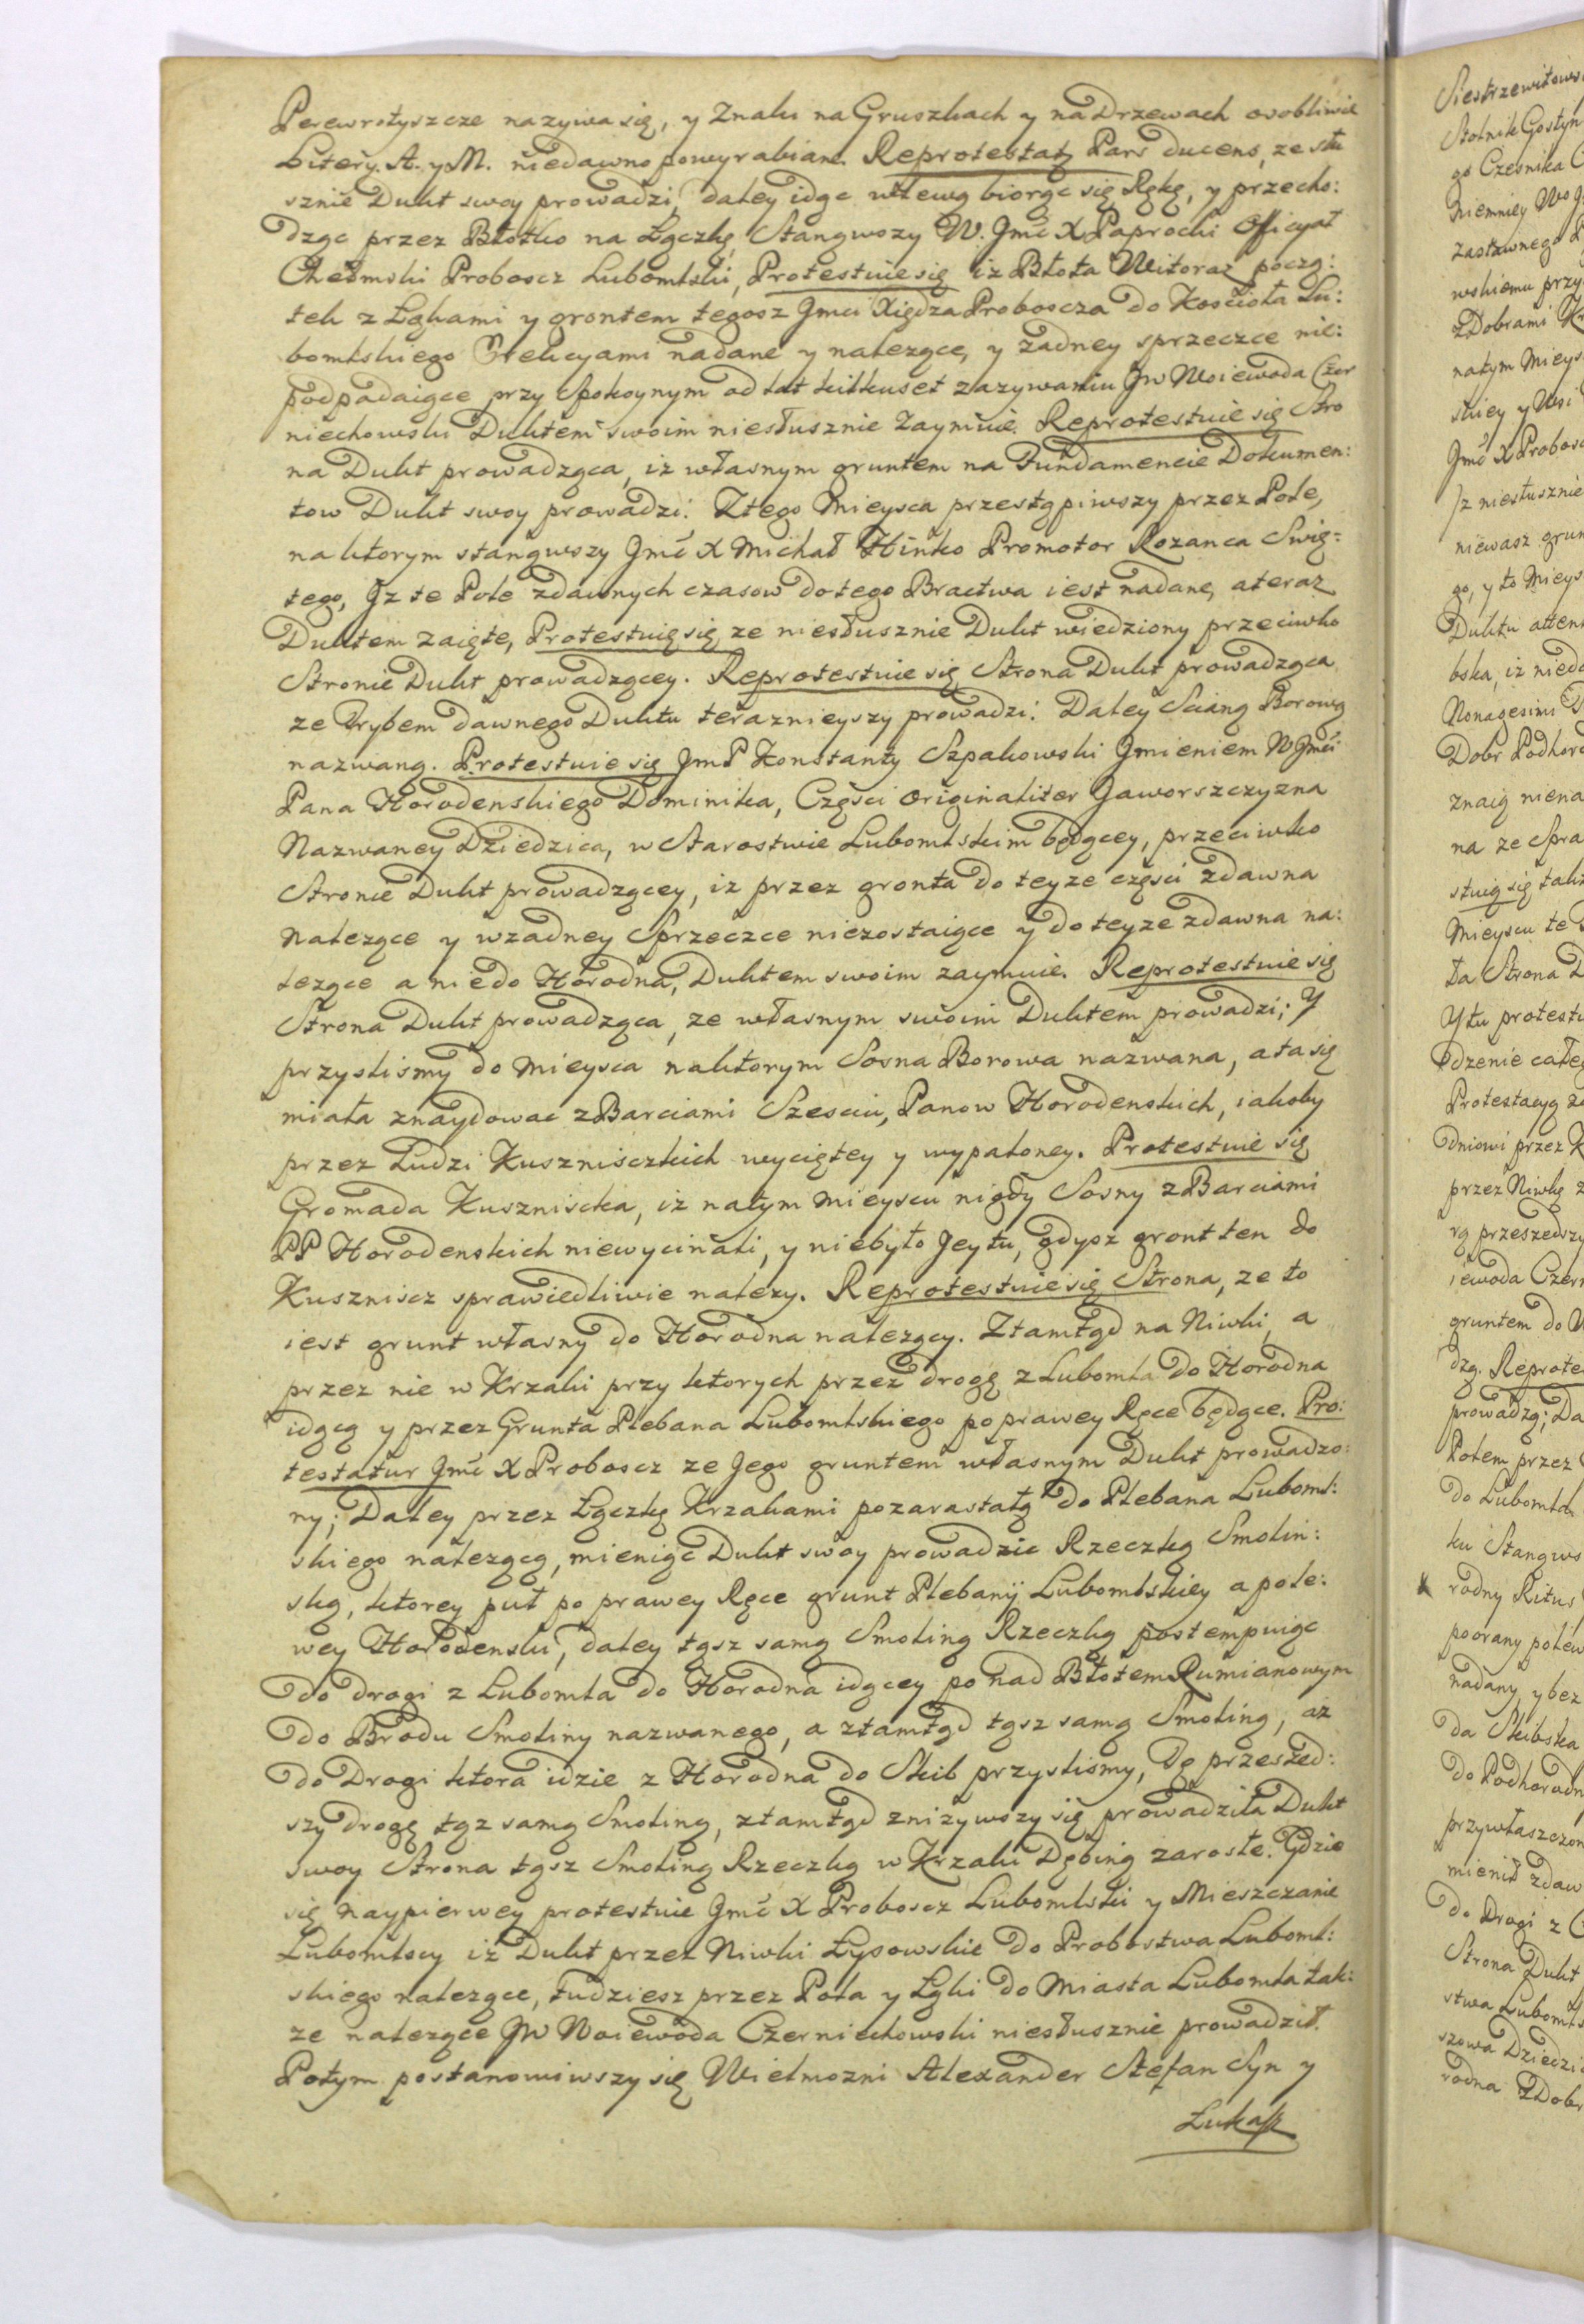 Perewrotyszcze nazywa się, y Znaku na Gruszkach y na Drzewach osobliwie
Litery. A. y M. niedawno powyrabiane. Reprotestatę Pars ducens, ze słu
sznie Dukt swoy prowadzi, daley idąc w lewą biorąc się Rękę, y przecho:
dząc przez Błotko na Łączkę, Stanąwszy W. Jmć X Paprocki Officyał
Chełmski Proboscz Lubomlski, Protestuie się iz Błota Witoraz począ:
tek z Łąkami y grontem tegosz Jmci Xiędza Proboscza do Kościoła Lu:
bomlskiego Erekcyami nadane y należące, y żadney sprzeczce nie:
podpadaiące przy Spokoynym od lat kilkuset zazywaniu JW Woiewoda Czer
niechowski Duktem swoim niesłusznie Zaymuie. Reprotestuie się Stro
na Dukt prowadząca, iz własnym gruntem na Fundamencie Dokumen:
tow Dukt swoy prowadzi. Z tego Mieysca przestąpiwszy przez Pole,
na ktorym stanąwszy Jmć X Michał Hinko Promotor Rozanca Swię:
tego, Jz te Pole zdawnych czasow do tego Bractwa iest nadane, a teraz
Duktem zaięte, Protestuię się ze niesłusznie Dukt wiedziony przeciwko
Stronie Dukt prowadzącey. Reprotestuie się Strona Dukt prowadząca
ze Trybem dawnego Duktu teraznieyszy prowadzi. Daley Scianą Borową
nazwaną. Protestuie się JmP Konstanty Szpakowski Jmieniem WJmći
Pana Horodenskiego Dominika, Części originaliter Jaworszczyzna
Nazwaney Dziedzica, w Starostwie Lubomlskim będącey, przeciwko
Stronie Dukt prowadzącey, iz przez gronta do teyze części zdawna
Nalezące y wzadney Sprzeczce niezostaiące y do teyze zdawna na:
lezące a nie do Horodna, Duktem swoim zaymuie. Reprotestuie się
Strona Dukt prowadząca, ze własnym swoim Duktem prowadzi; Y
przyslismy do Mieysca naktorym Sosna Borowa nazwana, a ta się
miała znaydowac z Barciami Szesciu, Panow Horodenskich, iakoby
przez Ludzi Kusznisczkich wyciętey y wypaloney. Protestuie się
Gromada Kuszniscka, iz natym Mieyscu nigdy Sosny z Barciami
PP Horodenskich niewycinali, y niebyło Jey tu, gdysz gront ten do
Kuszniscz sprawiedliwie nalezy. Reprotestuie się Strona, ze to
iest grunt własny do Horodna nalezący. Ztamtąd na Niwki, a
przez nie w Krzaki przy ktorych przez drogę z Lubomla do Horodna
idącą y przez Grunta Plebana Lubomlskiego po prawey Ręce będące. Pro:
testatur Jmć X Proboscz ze Jego gruntem własnym Dukt prowadzo:
ny; Daley przez Łączkę Krzakami pozarastałą do Plebana Luboml:
skiego nalezącą, mieniąc Dukt swoy prowadzic Rzeczką Smolin:
ską, ktorey puł po prawey Ręce grunt Plebanij Lubomlskiey a po le:
wey Horodenski, daley tąsz samą Smoliną Rzeczką postempuiąc
do drogi z Lubomla do Horodna idącey po nad Błotem Rumianowym
do Brodu Smoliny nazwanego, a ztamtąd tąsz samą Smoliną, az
do Drogi ktora idzie z Horodna do Skib przyslismy, Tę przeszed:
szy drogę tąz samą Smoliną, ztamtąd znizywszy się prowadziła Dukt
swoy Strona tąsz Smoliną Rzeczką w Krzaki Dębiną zarosłe. Gdzie
się naypierwey protestuie Jmć X Proboscz Lubomlski y Mieszczanie
Lubomlscy iz Dukt przez Niwki Łysowskie do Probostwa Luboml:
skiego nalezące, tudziesz przez Pola y Łąki do Miasta Lubomla tak:
ze nalezące JW Woiewoda Czerniechowski niesłusznie prowadził.
Potym postanowiwszy się Wielmozni Alexander Stefan Syn y
Łukasz